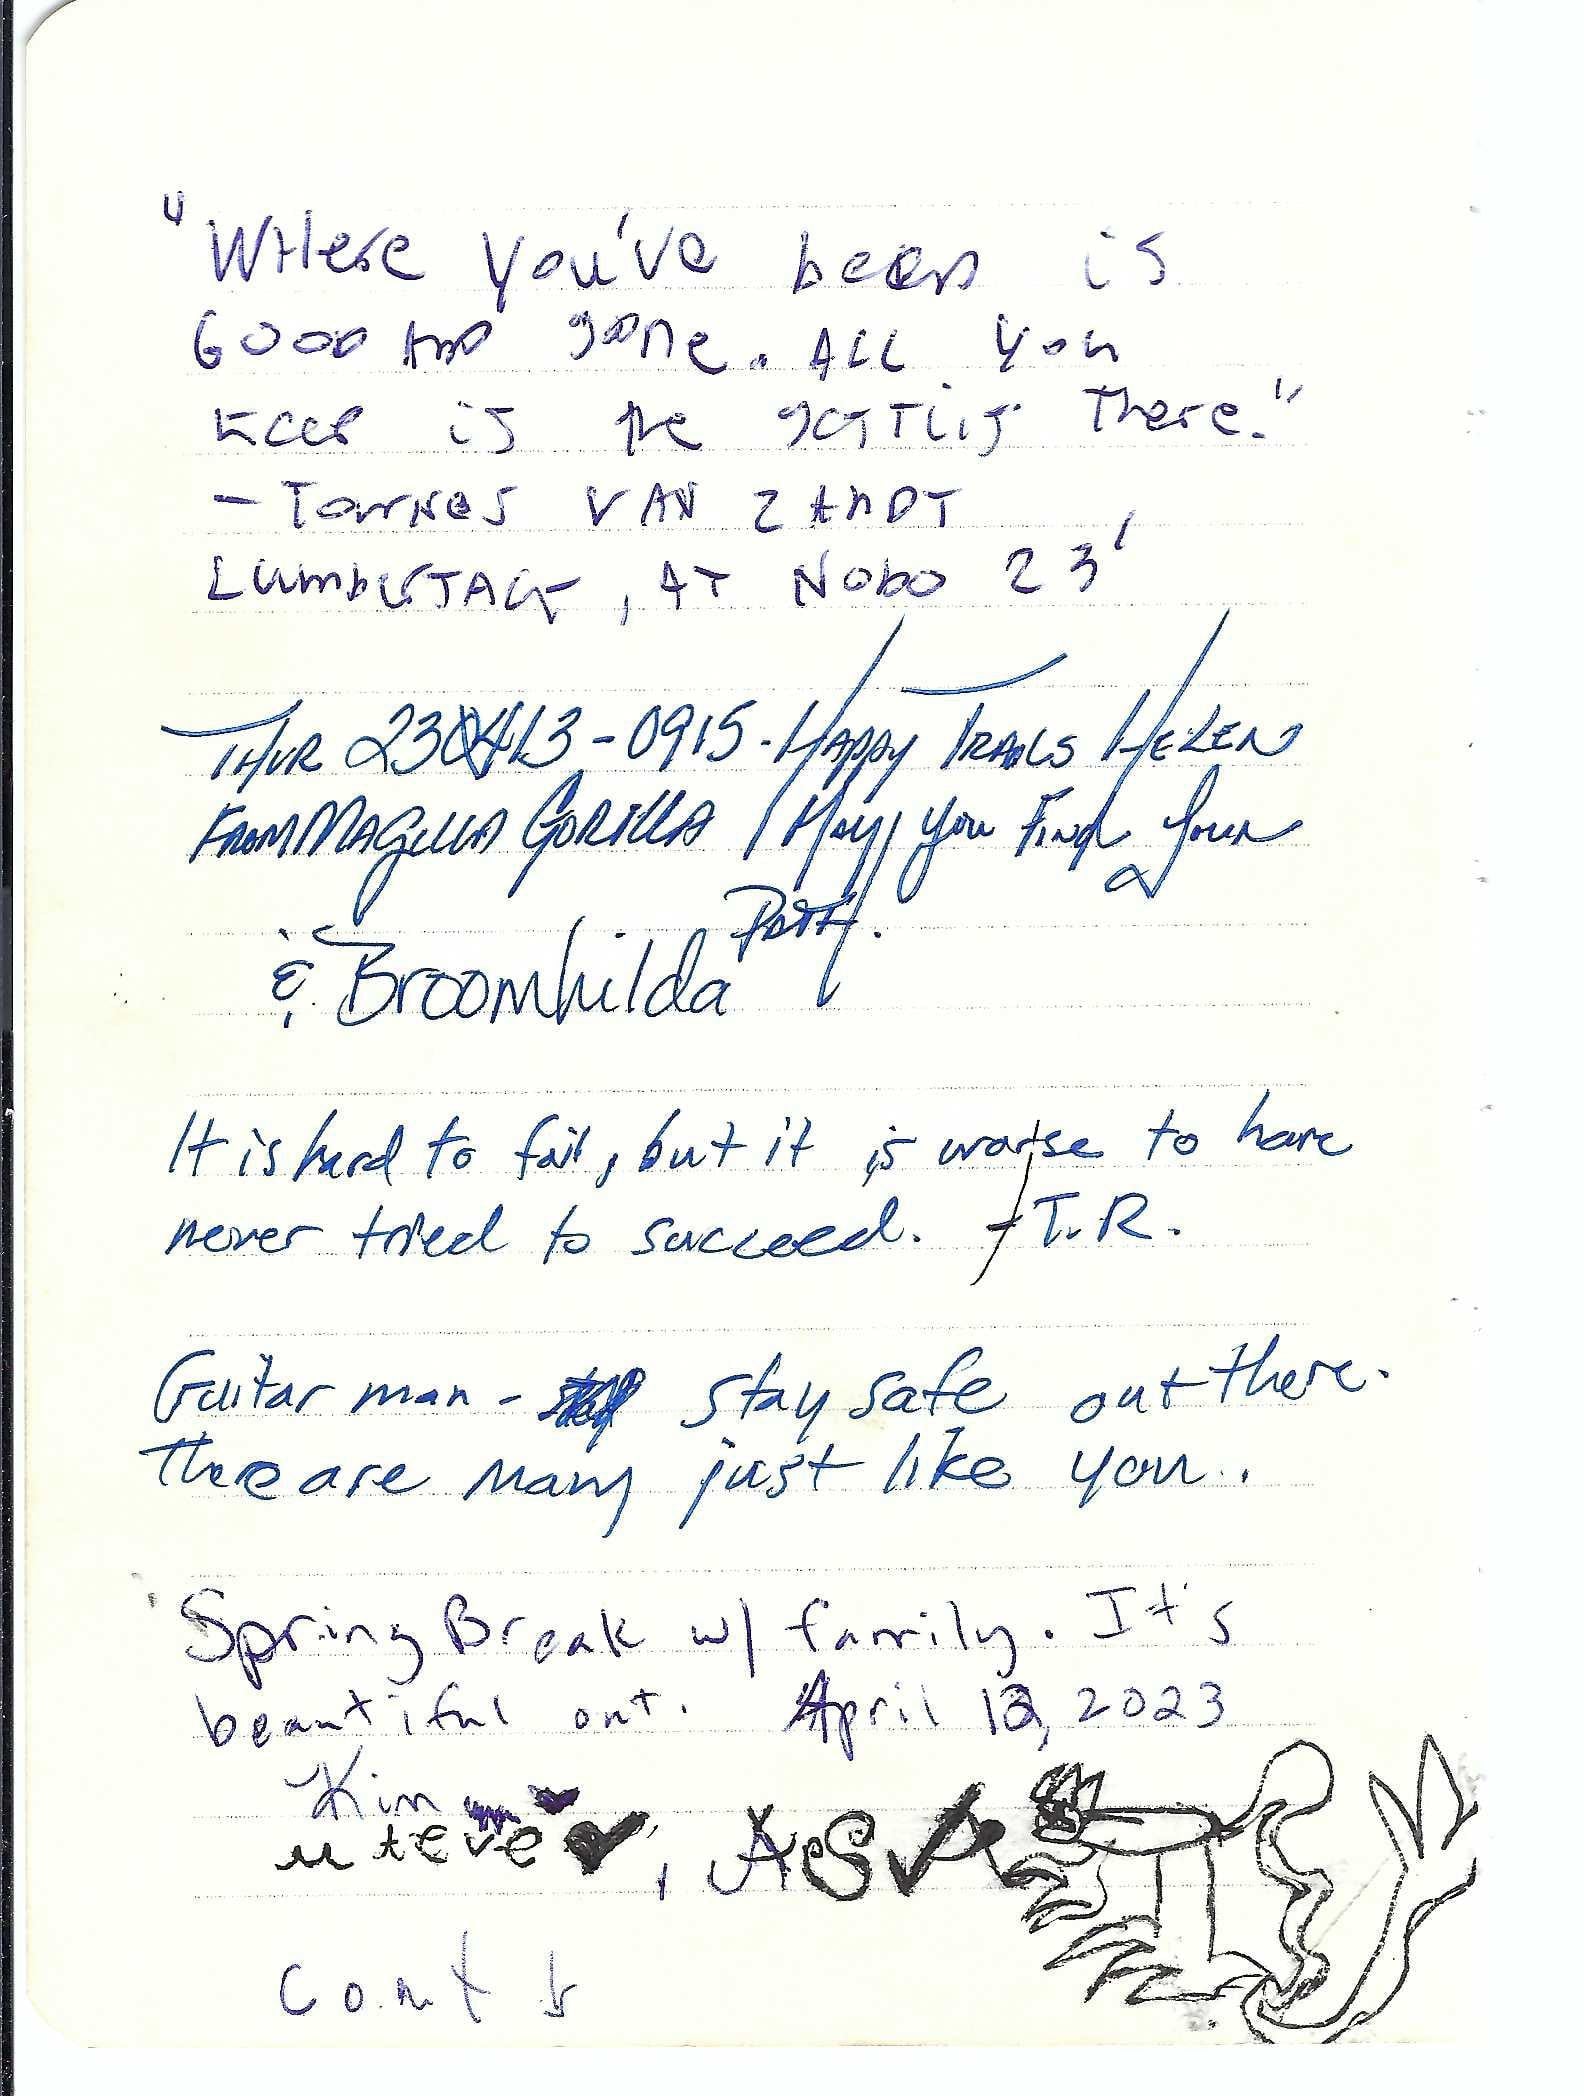 "Where you've been is
Good and gone. All you
keep is the getting there."
- Townes Van Zandt
Lumberjack, AT Nobo 23'
Thur 230413-0915. Happy Trails Helen
From Magilla Gorilla / May you Find Your
Path.
& Broomhilda
It is hard to fail, but it is worse to have
never tried to succeed. - T.R.
Guitar man - stay safe out there.
There are many just like you..
Spring Break w/ family. It's
beautiful out. April 12, 2023
Kin